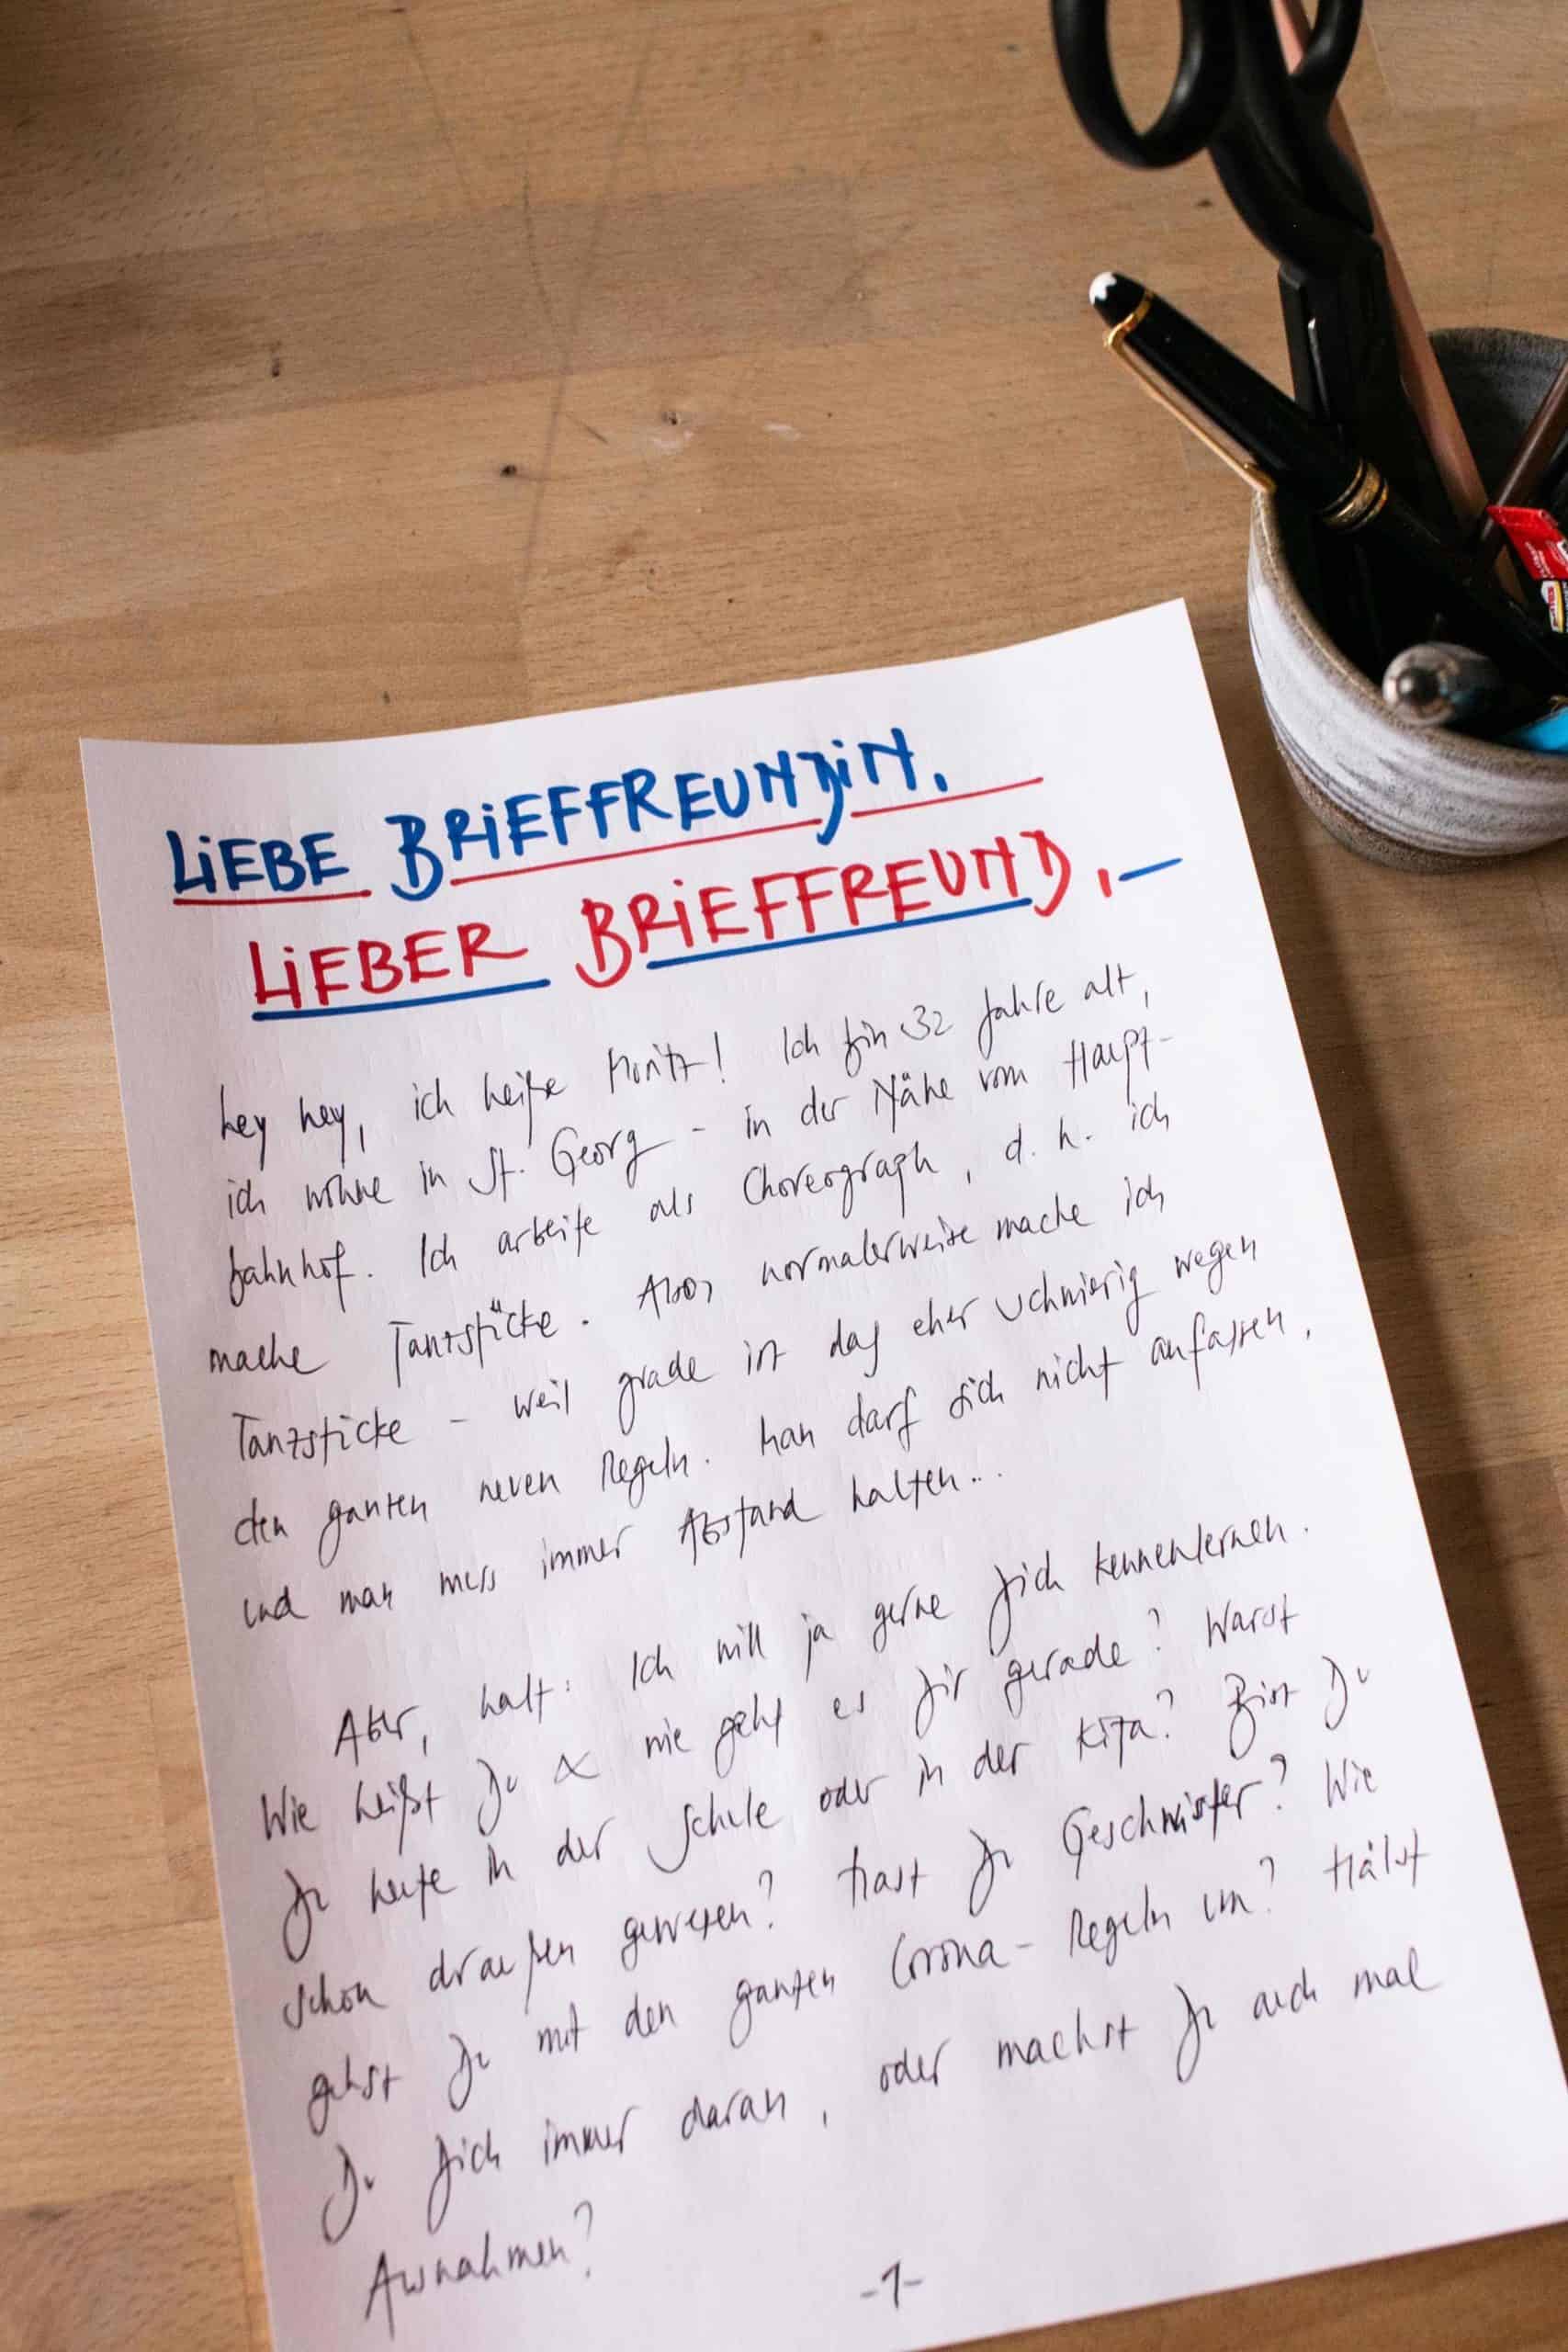 LiEBE BRiEFFREUNDiN,
LiEBER BRiEFFREUND,
hey hey, ich heiße Moritz! Ich bin 32 Jahre alt,
ich wohne in St. Georg - in der Nähe vom Haupt-
bahnhof. Ich arbeite als Choreograph, d. h. ich
mache Tanzstücke. Also, normalerweise mache ich
Tanzstücke - weil grade ist das eher schwierig wegen
den ganzen neuen Regeln. Man darf sich nicht anfassen,
und man muss immer Abstand halten...
Aber, halt: Ich will ja gerne Dich kennenlernen.
Wie heißt Du & wie geht es Dir gerade? Warst
Du heute in der Schule oder in der Kita? Bist Du
schon draußen gewesen? Hast Du Geschwister? Wie
gehst Du mit den ganzen Corona-Regeln um? Hälst
Du Dich immer daran, oder machst Du auch mal
Ausnahmen?
-1-